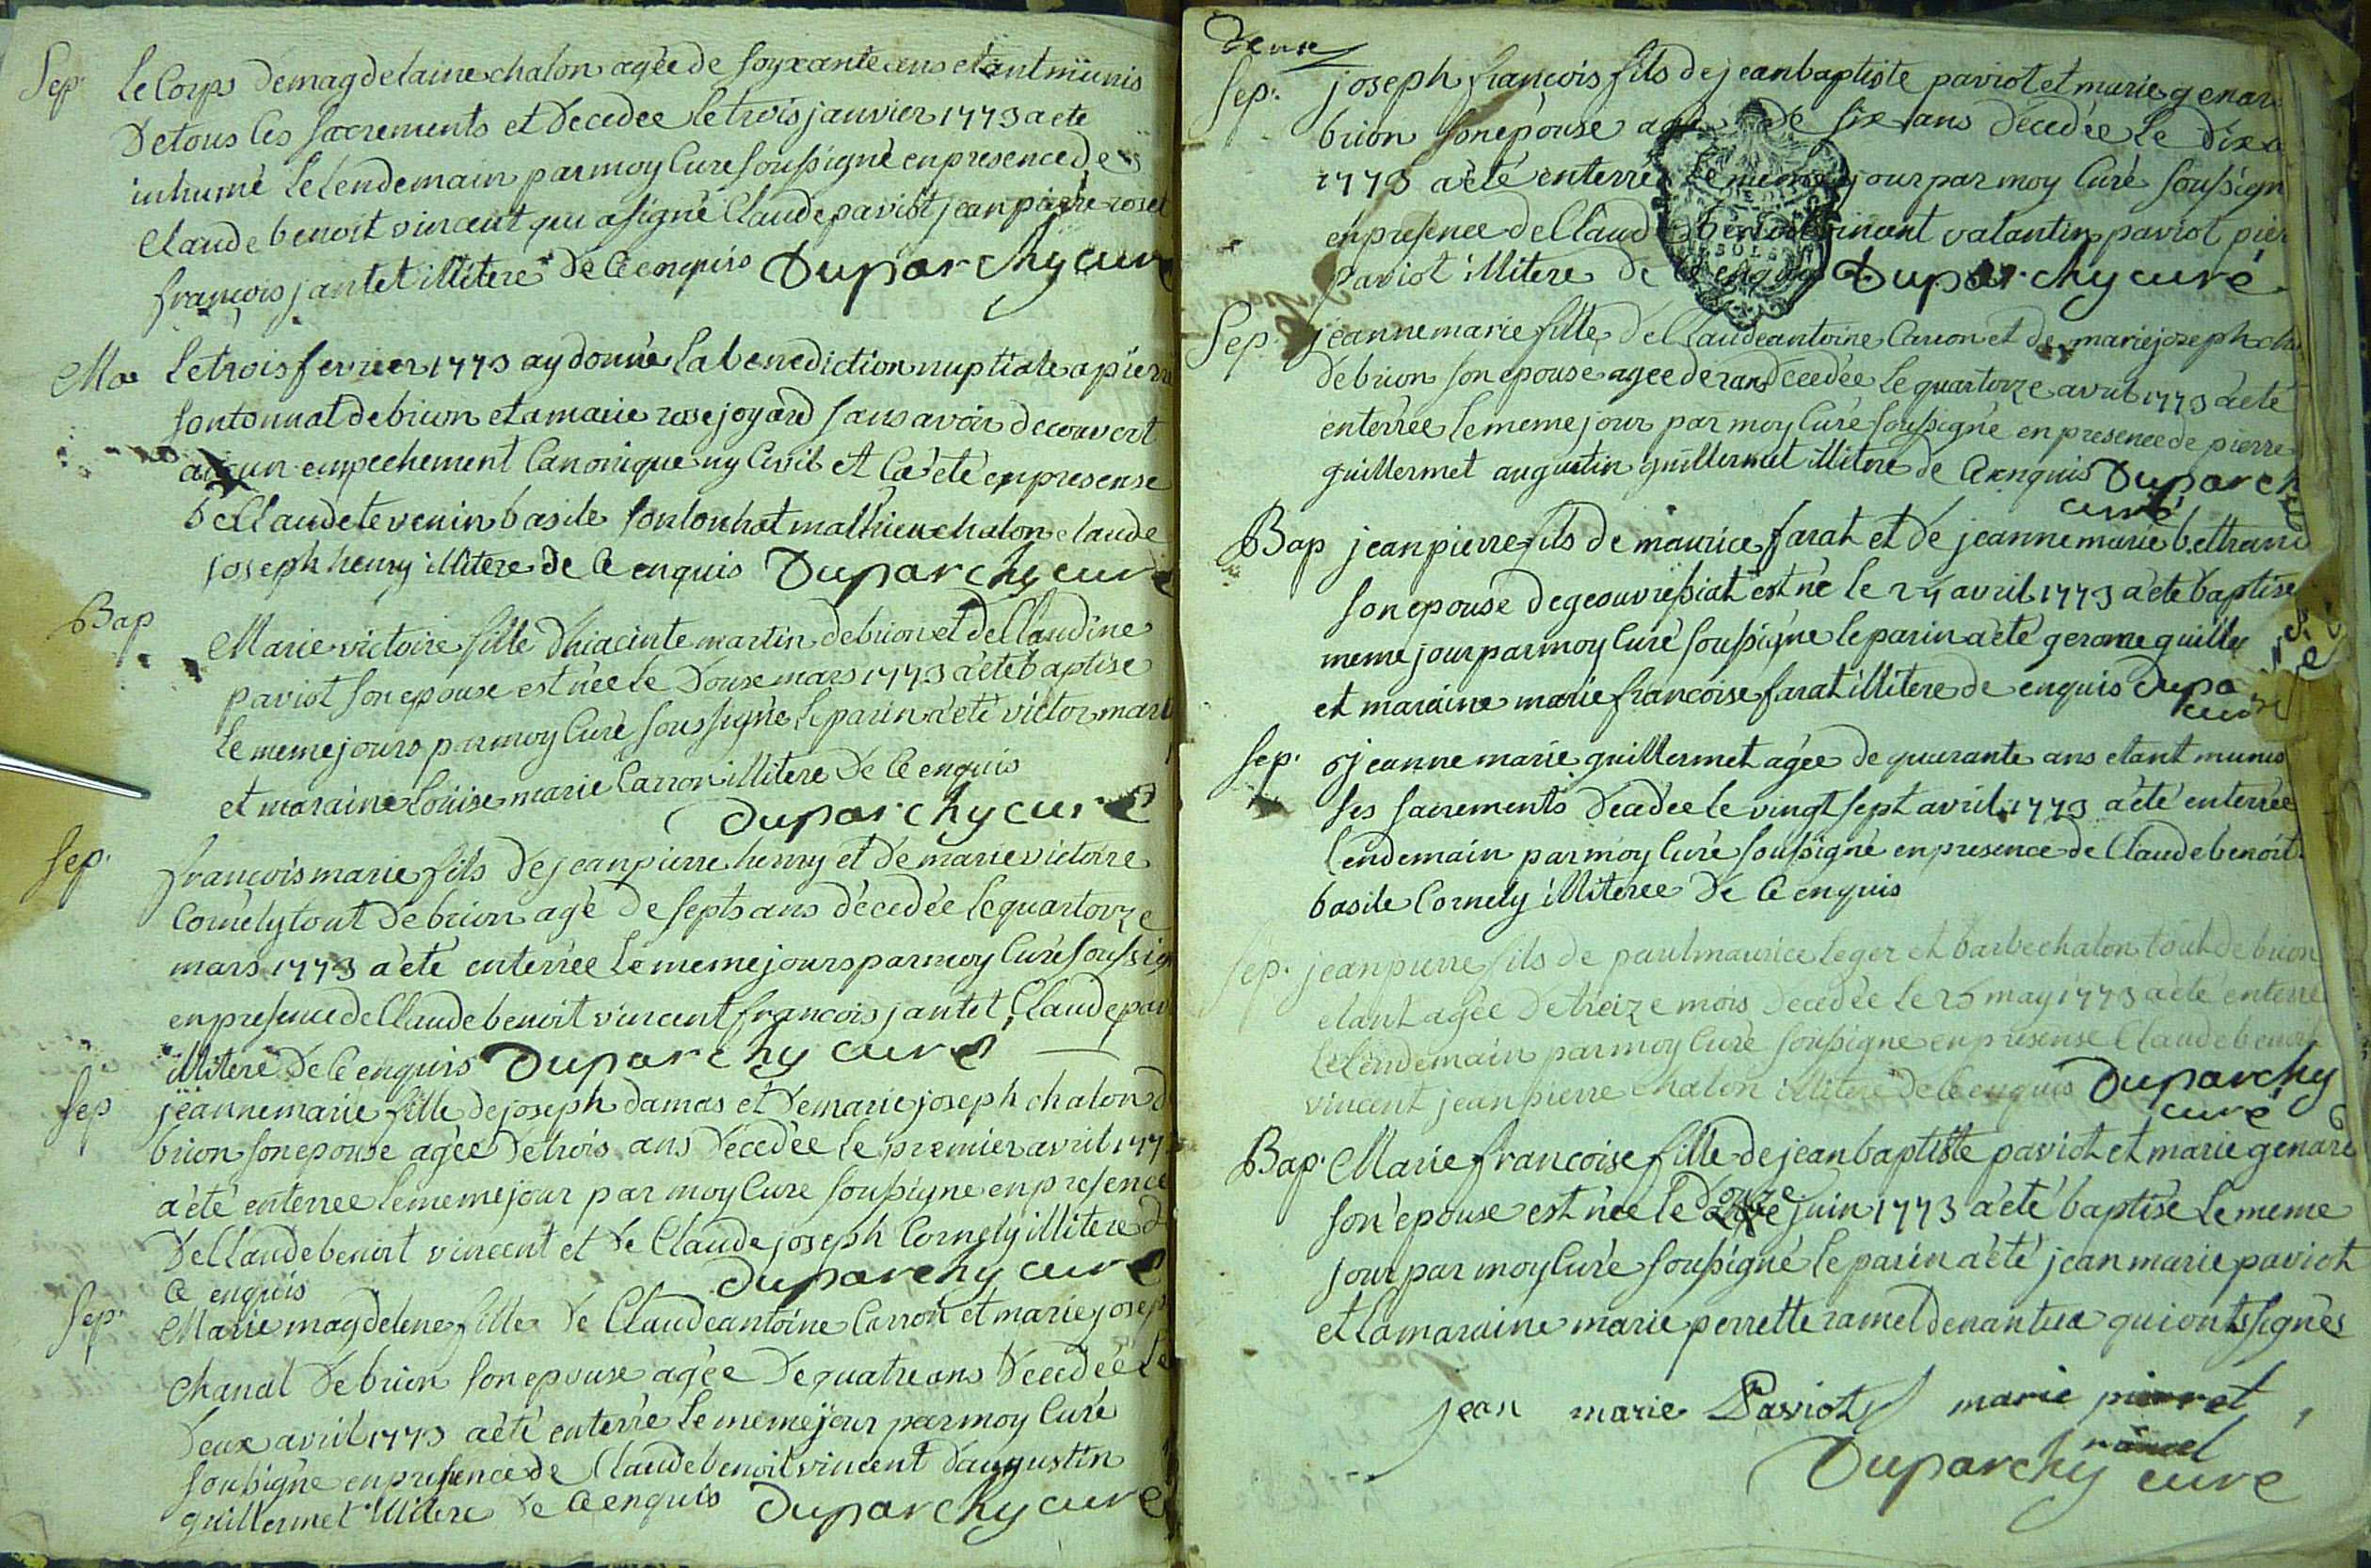 Sep. Le Corps de magdelaine chalon agée de soyxante ans etant munis
de tous les sacrements et decedée le trois janvier 1773 a ete
inhumé le lendemain par moy Curé soussigné en presence de
Claude benoit vincent qui a signé Claude paviot jean pierre roset
françois jantet illitere de Ce enquis Duparchy curé
Ma Le trois fevrier 1773 ay donné la benediction nuptiale a pierre
fontonnat de brion et a marie rose joyard sans avoir decouvert
aucun empechement Canonique ny Civil et Ca été en presense
de Claude tevenin basile fontonhat mathieu chalon claude
joseph henry illitere de Ce enquis Duparchy curé
Bap
Marie victoire fille d'hiacinte martin de brion et de Claudine
paviot son epouse est née le douse mars 1773 a été baptisé
le meme jours par moy Curé soussigné le parin a été victor mar
et maraine Louise marie Carron illitere de Ce enquis
Duparchy curé
Sep. françois marie fils de jean pierre henry et de marie victoire
Cornely tout de brion agé de septs ans décedée le quartorze
mars 1773 a été enterrée le meme jours par moy Curé soussig
en presence de Claude benoit vincent françois jantet Claude pav
illitere de Ce enquis Duparchy curé
Sep jeanne marie fille de joseph damas et de marie joseph chalon d
brion son epouse agée de trois ans decedée le premier avril 177
a été enterree le meme jour par moy Cure soussigne en presence
de Claude benoit vincent et de Claude joseph Cornely illitere d
Ce enquis Duparchy curé
Sep. Marie magdelene fille de Claude antoine Carron et marie josep
chanal de brion son epouse agée de quatre ans decedée le
deux avril 1773 a été enterrée le meme jour par moy Curé
soussigné en presence de Claude benoit vincent d'augustin
guillermet illitere de Ce enquis Duparchy curé
deux
Sep. joseph françois fils de jean baptiste paviot et marie genar
brion son epouse agé de six ans décedée le dix a
1773 a été enterré le meme jour par moy Curé soussign
en presence de Claude benoit vincent valantin paviot pier
paviot illitere de Ce enquis Duparchy curé
Sep. jeanne marie fille de Claude antoine Caron et de marie joseph cha
de brion son epouse agee de 2 ans decedée le quartorze avril 1773 a été
enterrée le meme jour par moy Curé soussigné en presence de pierre
guillermet augustin guillermet illitere de Ce enquis Duparch
curé
Bap jean pierre fils de maurice farat et de jeanne marie beltrand
son epouse de geouvressiat est né le 24 avril 1773 a été baptisé
meme jour par moy Curé soussigné le parin a été gerome guille
et maraine marie francoise farat illitere de enquis Dupa
curé
Sep. jeanne marie guillermet agée de quarante ans etant munis
ses sacrements decedée le vingt sept avril 1773 a été enterrée
lendemain par moy Curé soussigné en presence de Claude benoit
basile Cornely illiteree de Ce enquis
Sep. jean pierre fils de paul maurice leger et barbe chalon tout de brion
etant agée de treize mois decedée le 25 may 1773 a été enterré
le lendemain par moy Curé soussigne en presense Claude benoit
vincent jean pierre chalon illitere de Ce enquis Duparchy
curé
Bap. Marie francoise fille de jean baptiste paviot et marie genard
son epouse est née le juin 1773 a été baptisé le meme
jour par moy Curé soussigné le parin a été jean marie paviot
et la maraine marie perrette ramel de nantua qui onts signés
jean marie Paviot marie pierret
ramel
Duparchy curé